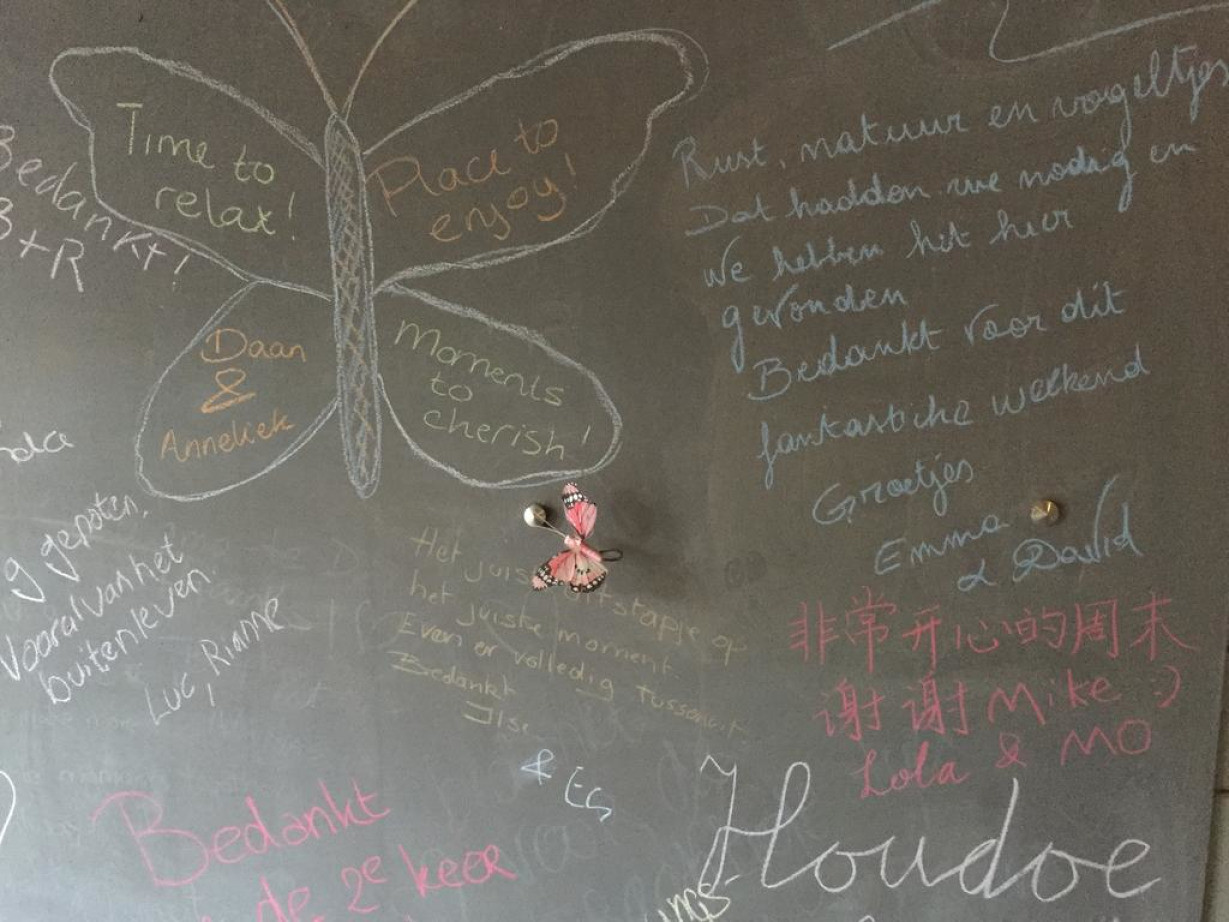 Time to
relax!
Place to
enjoy!
Daan
&
Anneliek
Moments
to
cherish!
Bedankt!
B+R
Rust, natuur en vogeltjes
Dat hadden we nodig en
We hebben het hier
gevonden
Bedankt voor dit
fantastiche weekend
Groetjes
Emma
& David
g genoten,
Vooral van het
buitenleven.
Luc, Rianne
Het juiste uitstapje op
het juiste moment.
Even er volledig tussenuit
Bedankt
Ilse
& Es
非常开心的周末
谢谢 Mike :)
Lola & MO
Bedankt
de 2e keer
Houdoe